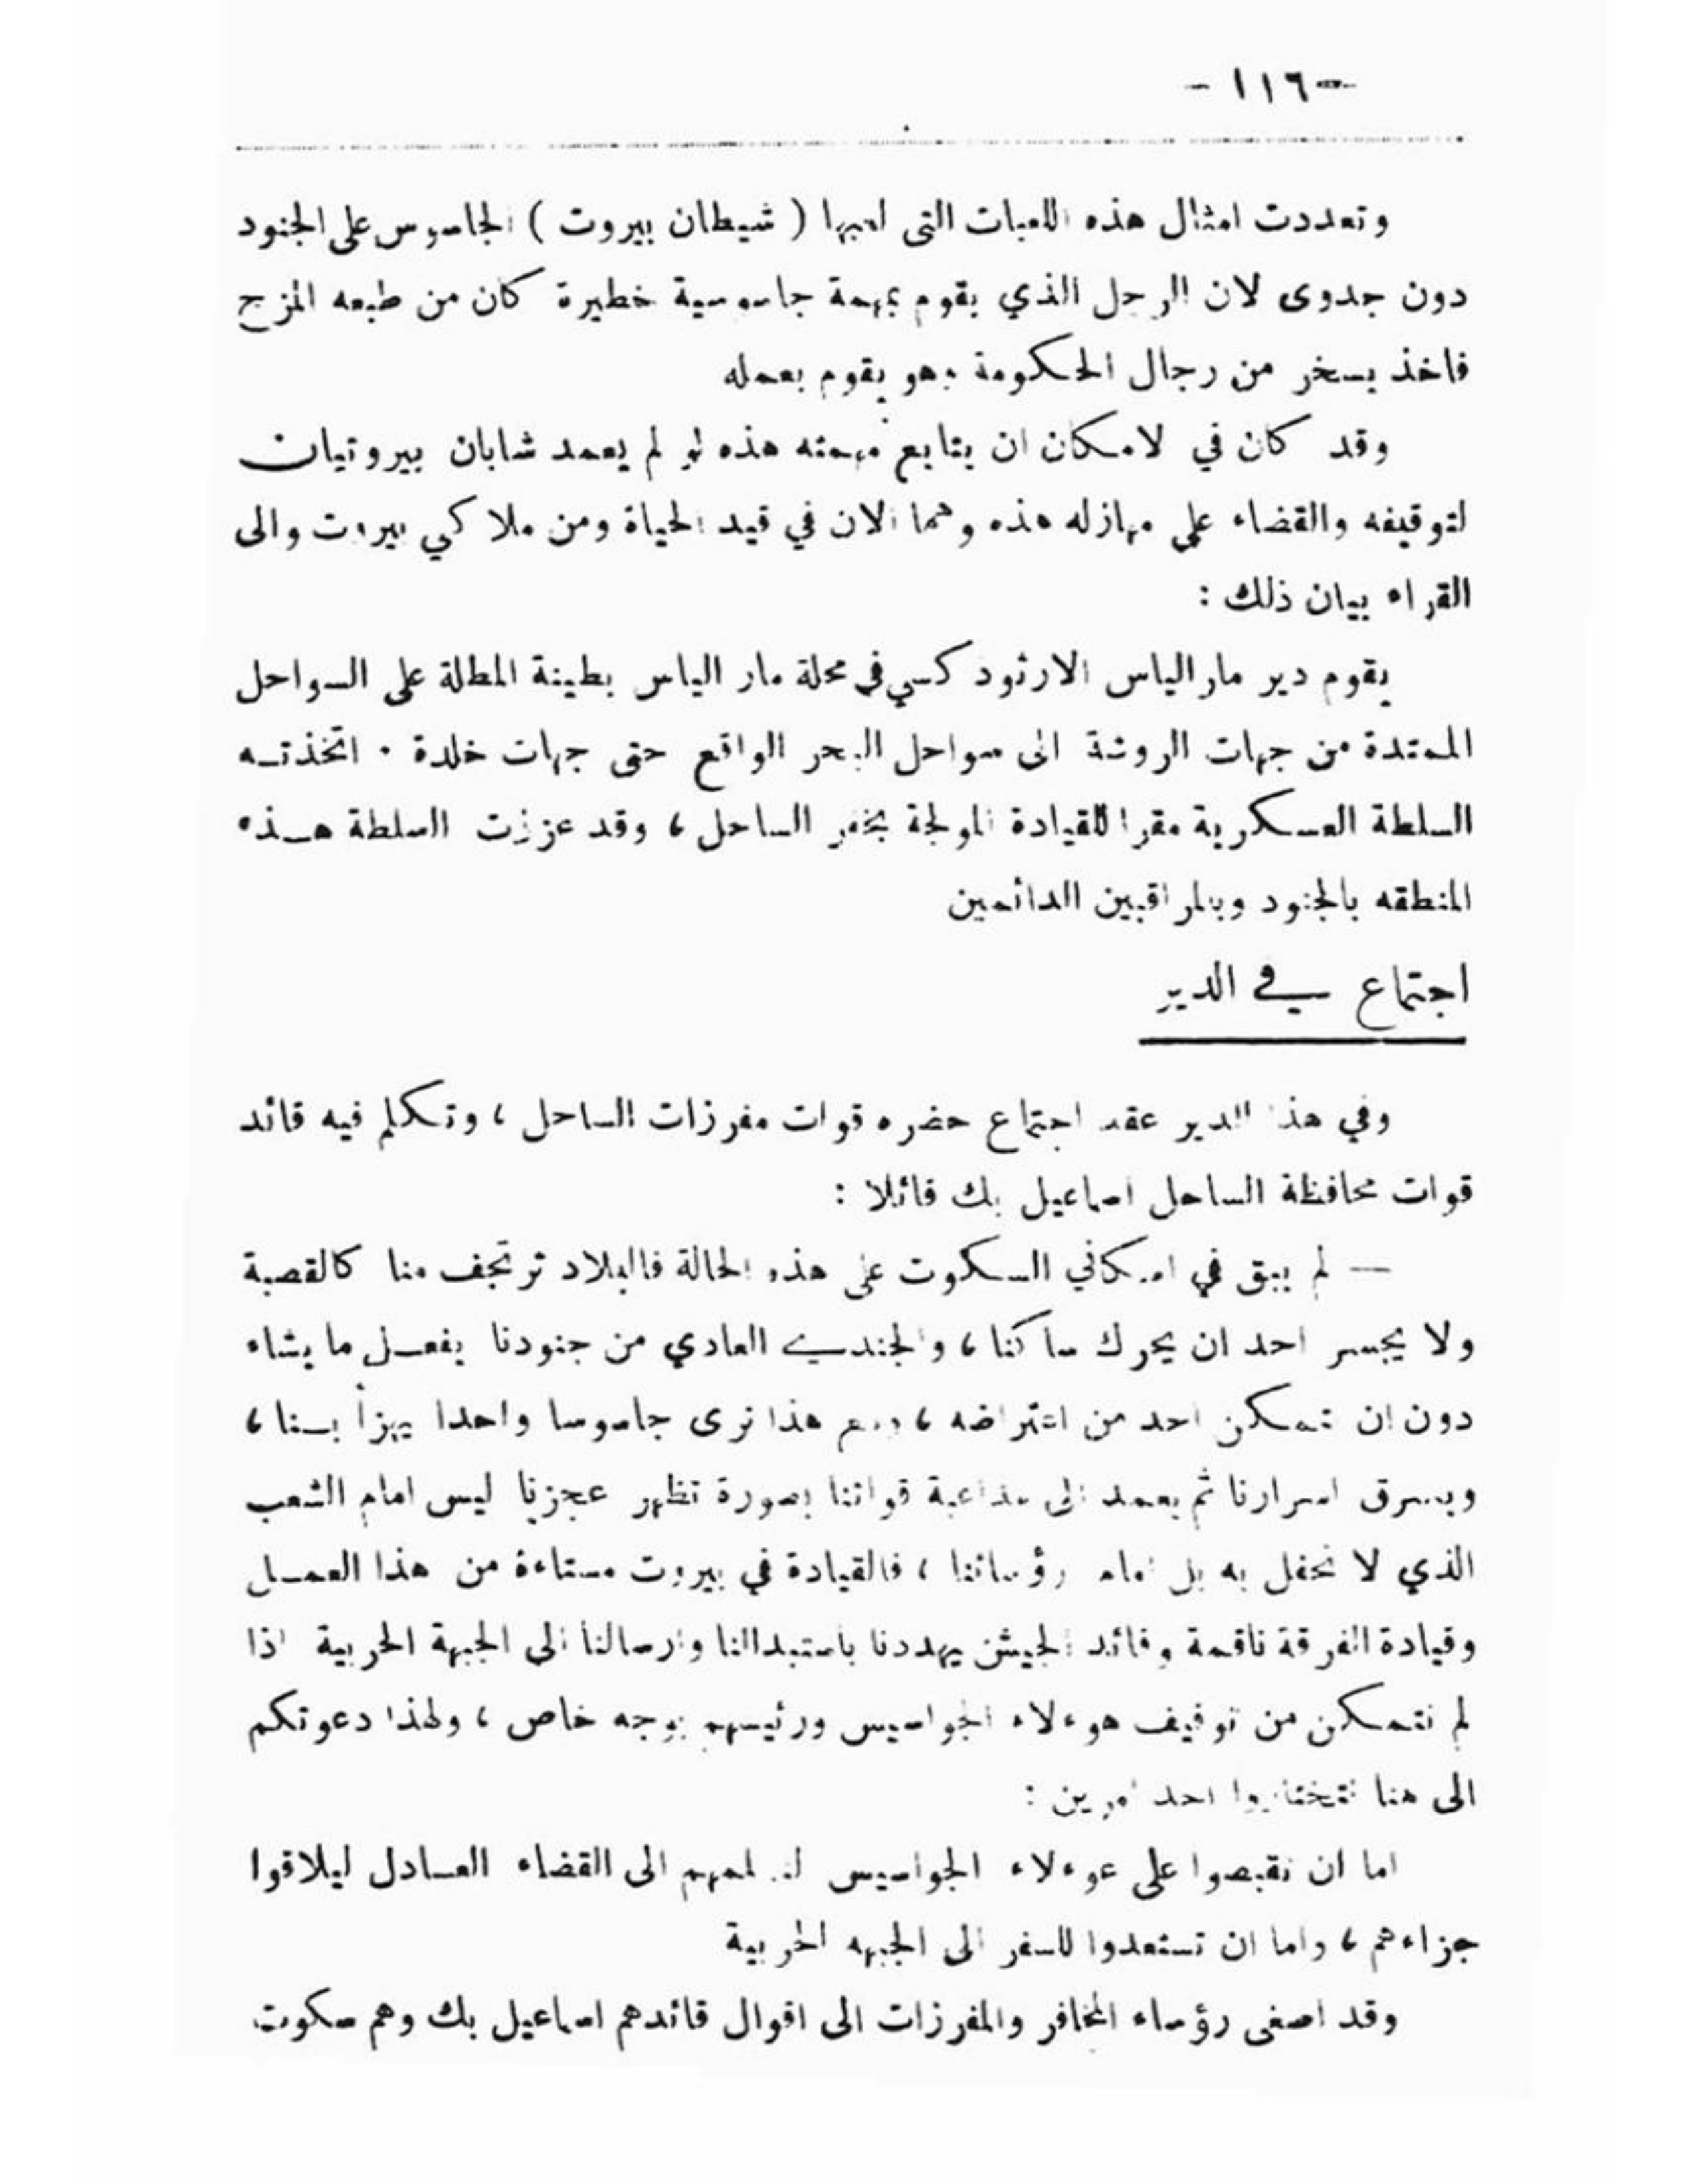 -١١٦-
وتعددت امثال هذه اللعبات التى لعبها ( شيطان بيروت ) الجاسوس على الجنود
دون جدوى لان الرجل الذي يقوم بمهمة جاسوسية خطيرة كان من طبعه المزح
فاخذ يسخر من رجال الحكومة وهو يقوم بعمله
وقد كان في لامكان ان يتابع مهمته هذه لو لم يعمد شابان بيروتيان
لتوقيفه والقضاء على مهازله هذه وهما الان في قيد الحياة ومن ملاكي بيروت والى
القراء بيان ذلك :
يقوم دير مار الياس الارثودكسي في محلة مار الياس بطينة المطلة على السواحل
الممتدة من جهات الروشة الى سواحل البحر الواقع حتى جهات خلدة · اتخذتـه
السلطة العسكرية مقرا للقيادة المولجة بخفر الساحل ، وقد عززت السلطة هـذه
المنطقه بالجنود وبالمراقبين الدائمين
اجتماع في الدير
وفي هذا الدير عقد اجتماع حضره قوات مفرزات الساحل ، وتكلم فيه قائد
قوات محافظة الساحل اسماعيل بك قائلا :
— لم يبق في امكاني السكوت على هذه الحالة فالبلاد ترتجف منا كالقصبة
ولا يجسر احد ان يحرك ساكنا ، والجندي العادي من جنودنا يفعـل ما يشاء
دون ان تمكن احد من اعتراضه ، ومع هذا نرى جاسوسا واحدا يهزأ بـنا ،
ويسرق اسرارنا ثم يعمد الى مداعبة قواتنا بصورة تظهر عجزنا ليس امام الشعب
الذي لا نحفل به بل امام رؤسائنا ، فالقيادة في بيروت مستاءة من هذا العمـل
وقيادة الفرقة ناقمة وقائد الجيش يهددنا باستبدالنا وارسالنا الى الجبهة الحربية اذا
لم نتمكن من توقيف هوءلاء الجواسيس ورئيسهم بوجه خاص ، ولهذا دعوتكم
الى هنا لتختاروا احد امرين :
اما ان تقبضوا على هوءلاء الجواسيس لنسلمهم الى القضاء العـادل ليلاقوا
جزاءهم ، واما ان تستعدوا للسفر الى الجبهه الحربية
وقد اصغى رؤساء المخافر والمفرزات الى اقوال قائدهم اسماعيل بك وهم سكوت